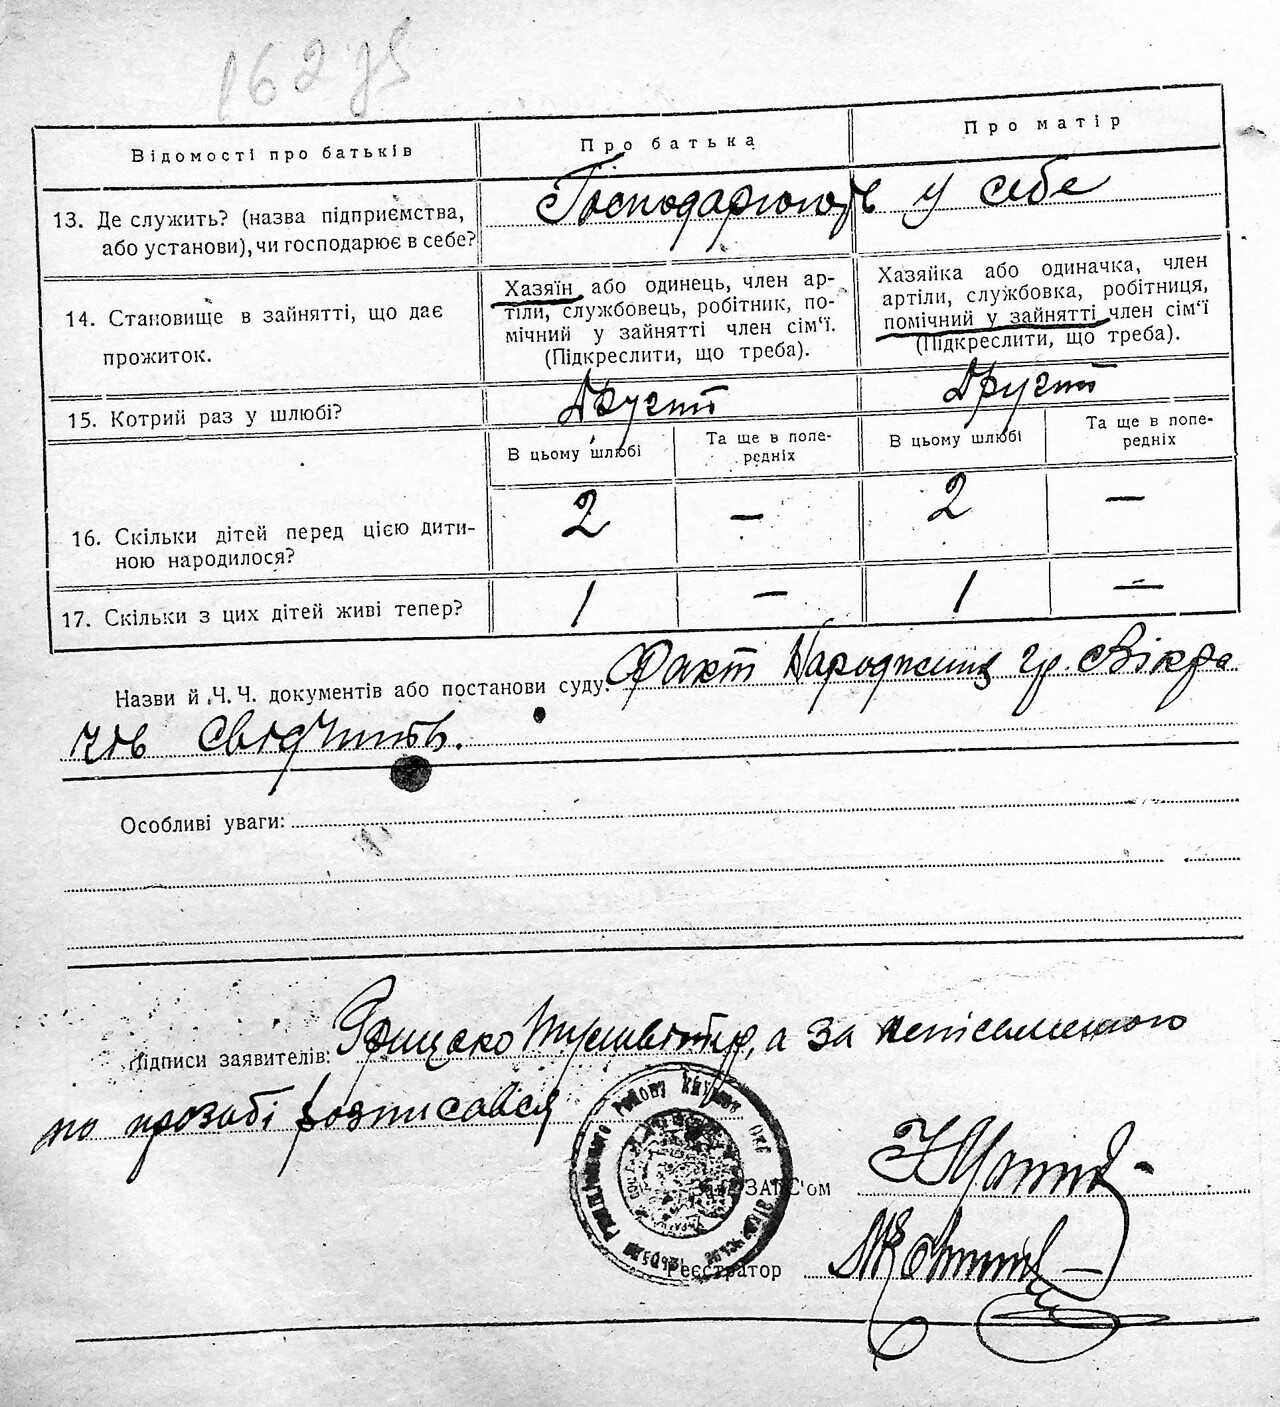 162
Відомості про батьків
Про батька
Про матір
13. Де служить? (назва підприємства,
або установи), чи господарює в себе?
Господарюють у себе
14. Становище в зайнятті, що дає
прожиток.
Хазяїн або одинець, член ар-
тіли, службовець, робітник, по-
мічний у зайнятті член сім'ї.
(Підкреслити, що треба).
Хазяйка або одиначка, член
артіли, службовка, робітниця,
помічний у зайнятті член сім'ї
(Підкреслити, що треба).
15. Котрий раз у шлюбі?
Другий
Другий
В цьому шлюбі
Та ще в попе-
редніх
В цьому шлюбі
Та ще в попе-
редніх
16. Скільки дітей перед цією дити-
ною народилося?
2
—
2
—
17. Скільки з цих дітей живі тепер?
1
—
1
—
Назви й Ч.Ч. документів або постанови суду: Факт Народження гр.
свідчить.
Особливі уваги:
Підписи заявителів: Грицько а за неписьменного
по прозьбі розписався
ЗАГС'ом
Реєстратор